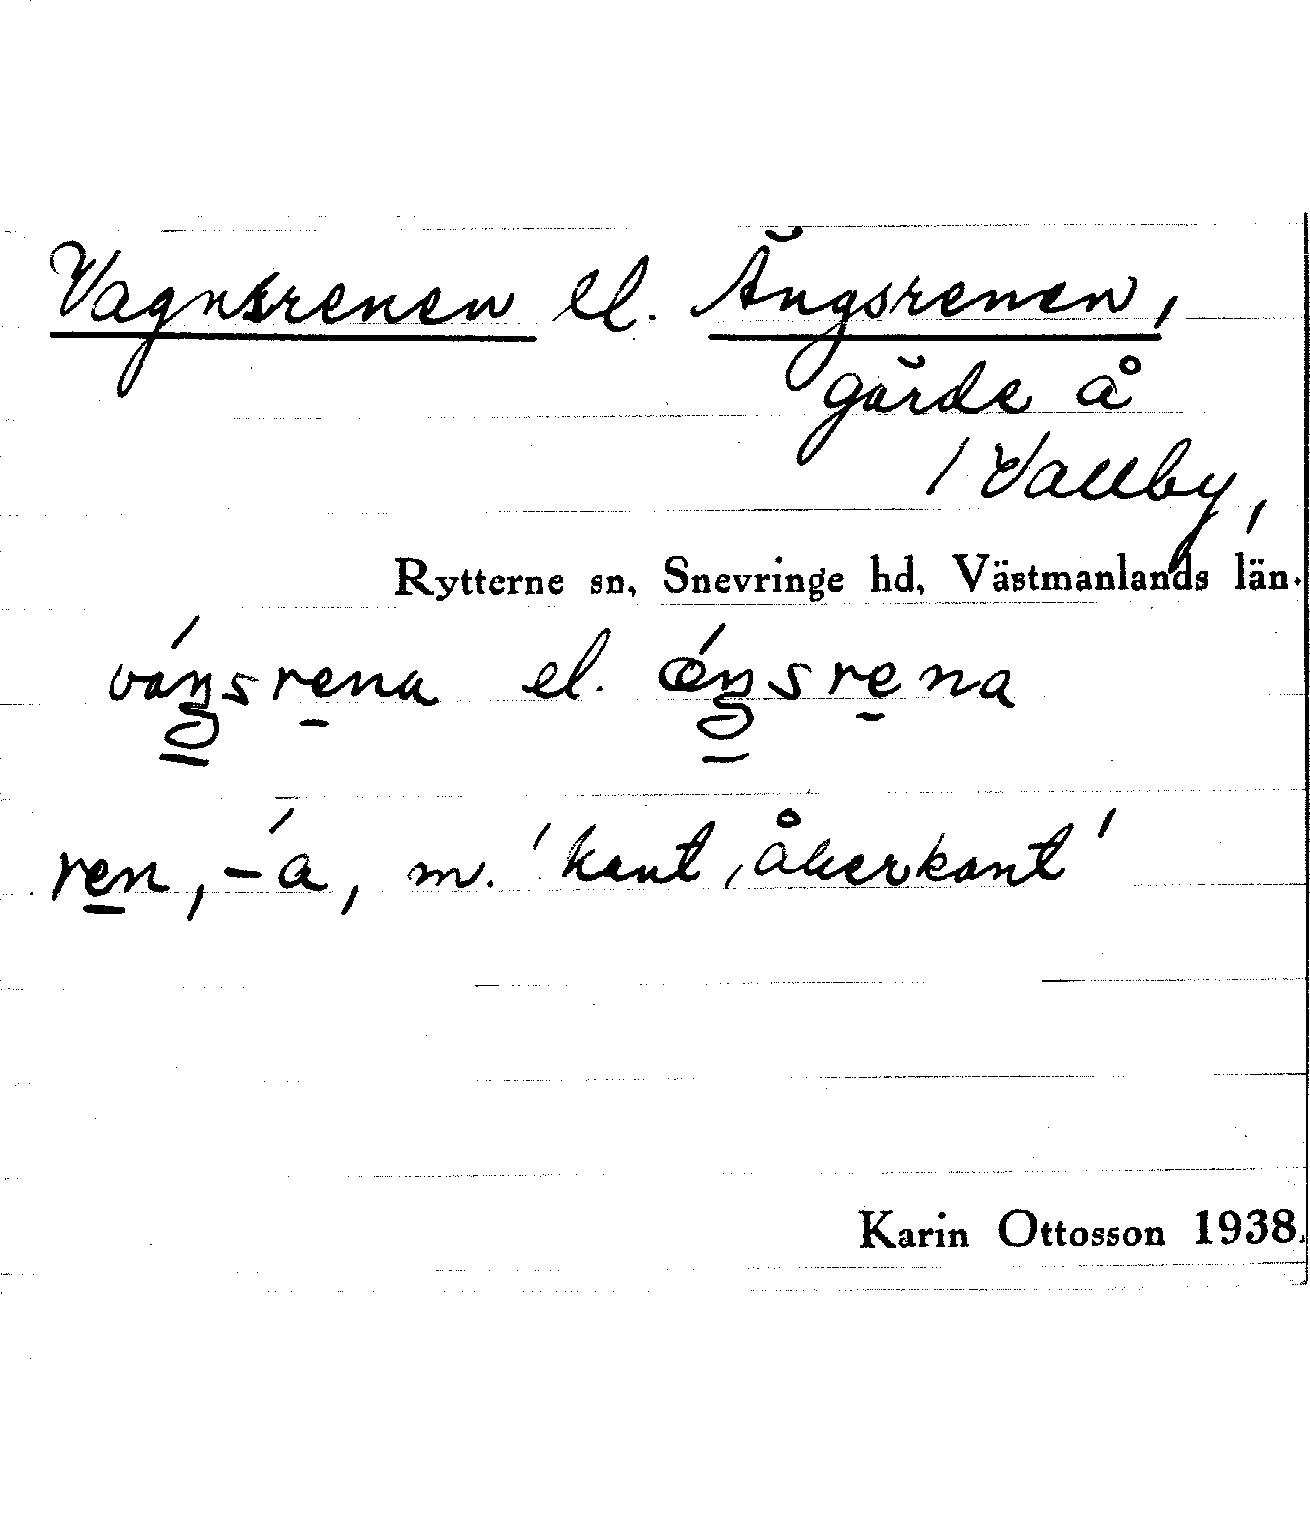 Vagnsrenen el. Ängsrenen,
gärde å
/ Vallby,
Rytterne sn, Snevringe hd, Västmanlands län.
váŋsrena el. ǽŋsrena
ren, -a, m. 'kant, åkerkant'
Karin Ottosson 1938.